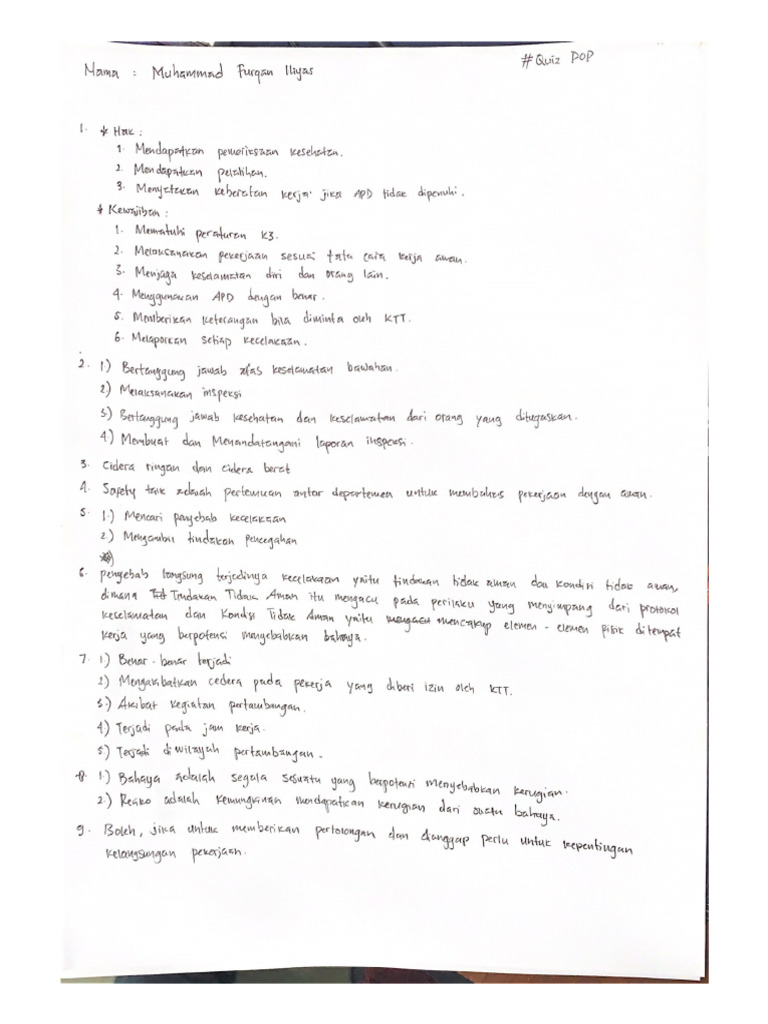 Nama : Muhammad Furqan Iliyas
#Quiz POP
1. * Hak :
1. Mendapatkan pemeriksaan kesehatan.
2. Mendapatkan pelatihan.
3. Menyatakan keberatan kerja jika APD tidak dipenuhi.
* Kewajiban :
1. Mematuhi peraturan K3.
2. Melaksanakan pekerjaan sesuai tata cara kerja aman.
3. Menjaga keselamatan diri dan orang lain.
4. Menggunakan APD dengan benar.
5. Memberikan keterangan bila diminta oleh KTT.
6. Melaporkan setiap kecelakaan.
2. 1) Bertanggung jawab atas keselamatan bawahan.
2) Melaksanakan inspeksi
3) Bertanggung jawab kesehatan dan keselamatan dari orang yang ditugaskan.
4) Membuat dan Menandatangani laporan inspeksi.
3. Cidera ringan dan cidera berat
4. Safety talk adalah pertemuan antar departemen untuk membahas pekerjaan dengan aman.
5. 1.) Mencari penyebab kecelakaan
2.) Mengambil tindakan pencegahan
6. penyebab langsung terjadinya kecelakaan yaitu tindakan tidak aman dan kondisi tidak aman,
dimana Tindakan Tidak Aman itu mengacu pada perilaku yang menyimpang dari protokol
keselamatan dan Kondisi Tidak Aman yaitu mencakup elemen - elemen fisik ditempat
kerja yang berpotensi menyebabkan bahaya.
7. 1) Benar - benar terjadi
2) Mengakibatkan cedera pada pekerja yang diberi izin oleh KTT.
3.) Akibat kegiatan pertambangan.
4) Terjadi pada jam kerja.
5) Terjadi di wilayah pertambangan.
8. 1.) Bahaya adalah segala sesuatu yang berpotensi menyebabkan kerugian.
2.) Resiko adalah kemungkinan mendapatkan kerugian dari suatu bahaya.
9. Boleh, jika untuk memberikan pertolongan dan dianggap perlu untuk kepentingan
kelangsungan pekerjaan.